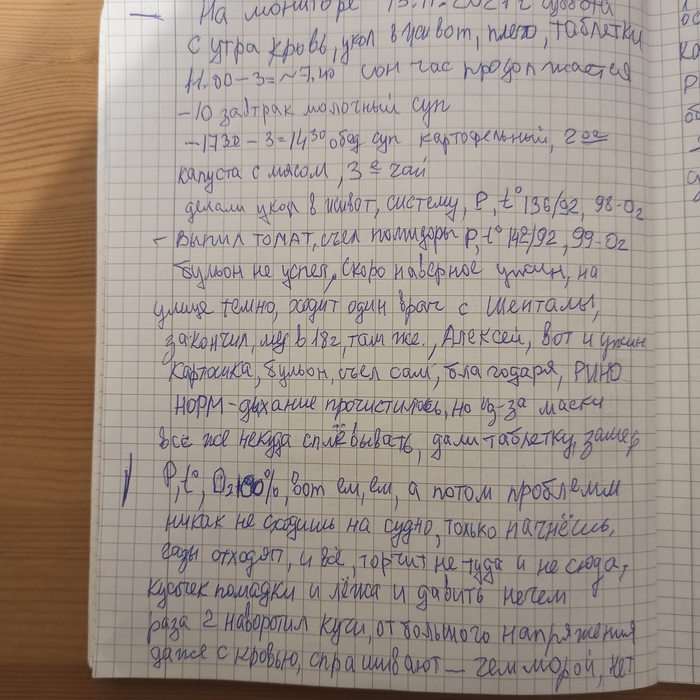 — На мониторе 13.11.2021 г суббота
с утра кровь, укол в живот, плечо, таблетки
11.00-3=~7.40 сон час продолжается
-10 завтрак молочный суп
-1730-3=1430 обед суп картофельный, 2ое
капуста с мясом, 3е чай
делали укол в живот, систему, P, t° 136/92, 98-O2
- Выпил томат, съел помидоры P, t° 142/92, 99-O2
бульон не успел, скоро наверное ужин, на
улице темно, ходит один врач с Шенталы,
закончил, в 18г, там же, Алексей, вот и ужин
картошка, бульон, съел сам, благодаря, РИНО
НОРМ-дыхание прочистилось, но из-за маски
всё же некуда сплёвывать, дали таблетку, замер
P, t°, O2 100%, вот ем, ем, а потом проблемы
никак не сходишь на судно, только начнёшь,
газы отходят, и всё, торчит не туда и не сюда,
кусочек помадки и лёжа и давить нечем
раза 2 наворотил кучи, от большого напряжения
даже с кровью, спрашивают — геморой, нет